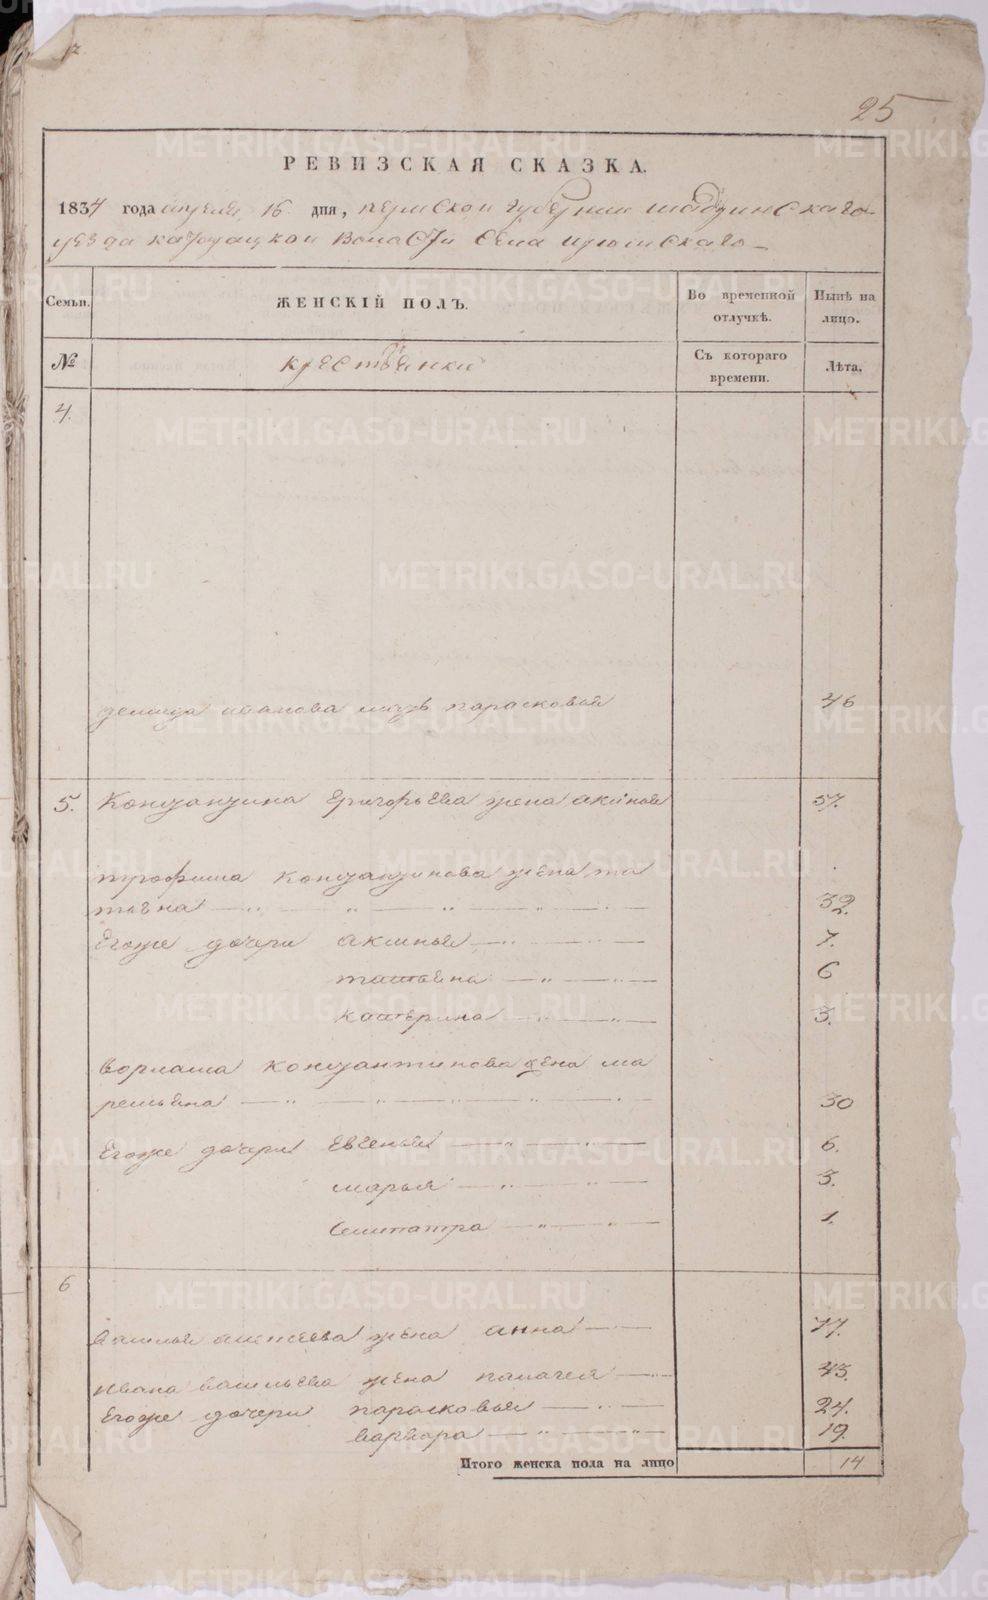 25
РЕВИЗСКАЯ СКАЗКА.
1834 года апреля 16 дня, пермской губернии шадринскаго
уезда волости села
Семьи. ЖЕНСКІЙ ПОЛЪ. Во временной отлучкѣ. Нынѣ на лицо.
№ крестьянки Съ котораго времени. Лѣта.
4.
демида иванова мать парасковья 46
5. Константина Григорьева жена аксинья 57.
трофима Константинова жена та
тьяна 32.
Егоже дочери аксинья 7.
татьяна 6
катерина 3.
варлама Константинова жена ма
ремьяна 30
Егоже дочери Евгенья 6.
марья 3.
1.
6
василья алексеева жена анна 77.
ивана васильева жена палагея 43.
Егоже дочери парасковья 24.
варвара 19.
Итого женска пола на лицо 14
METRIKI.GASO-URAL.RU